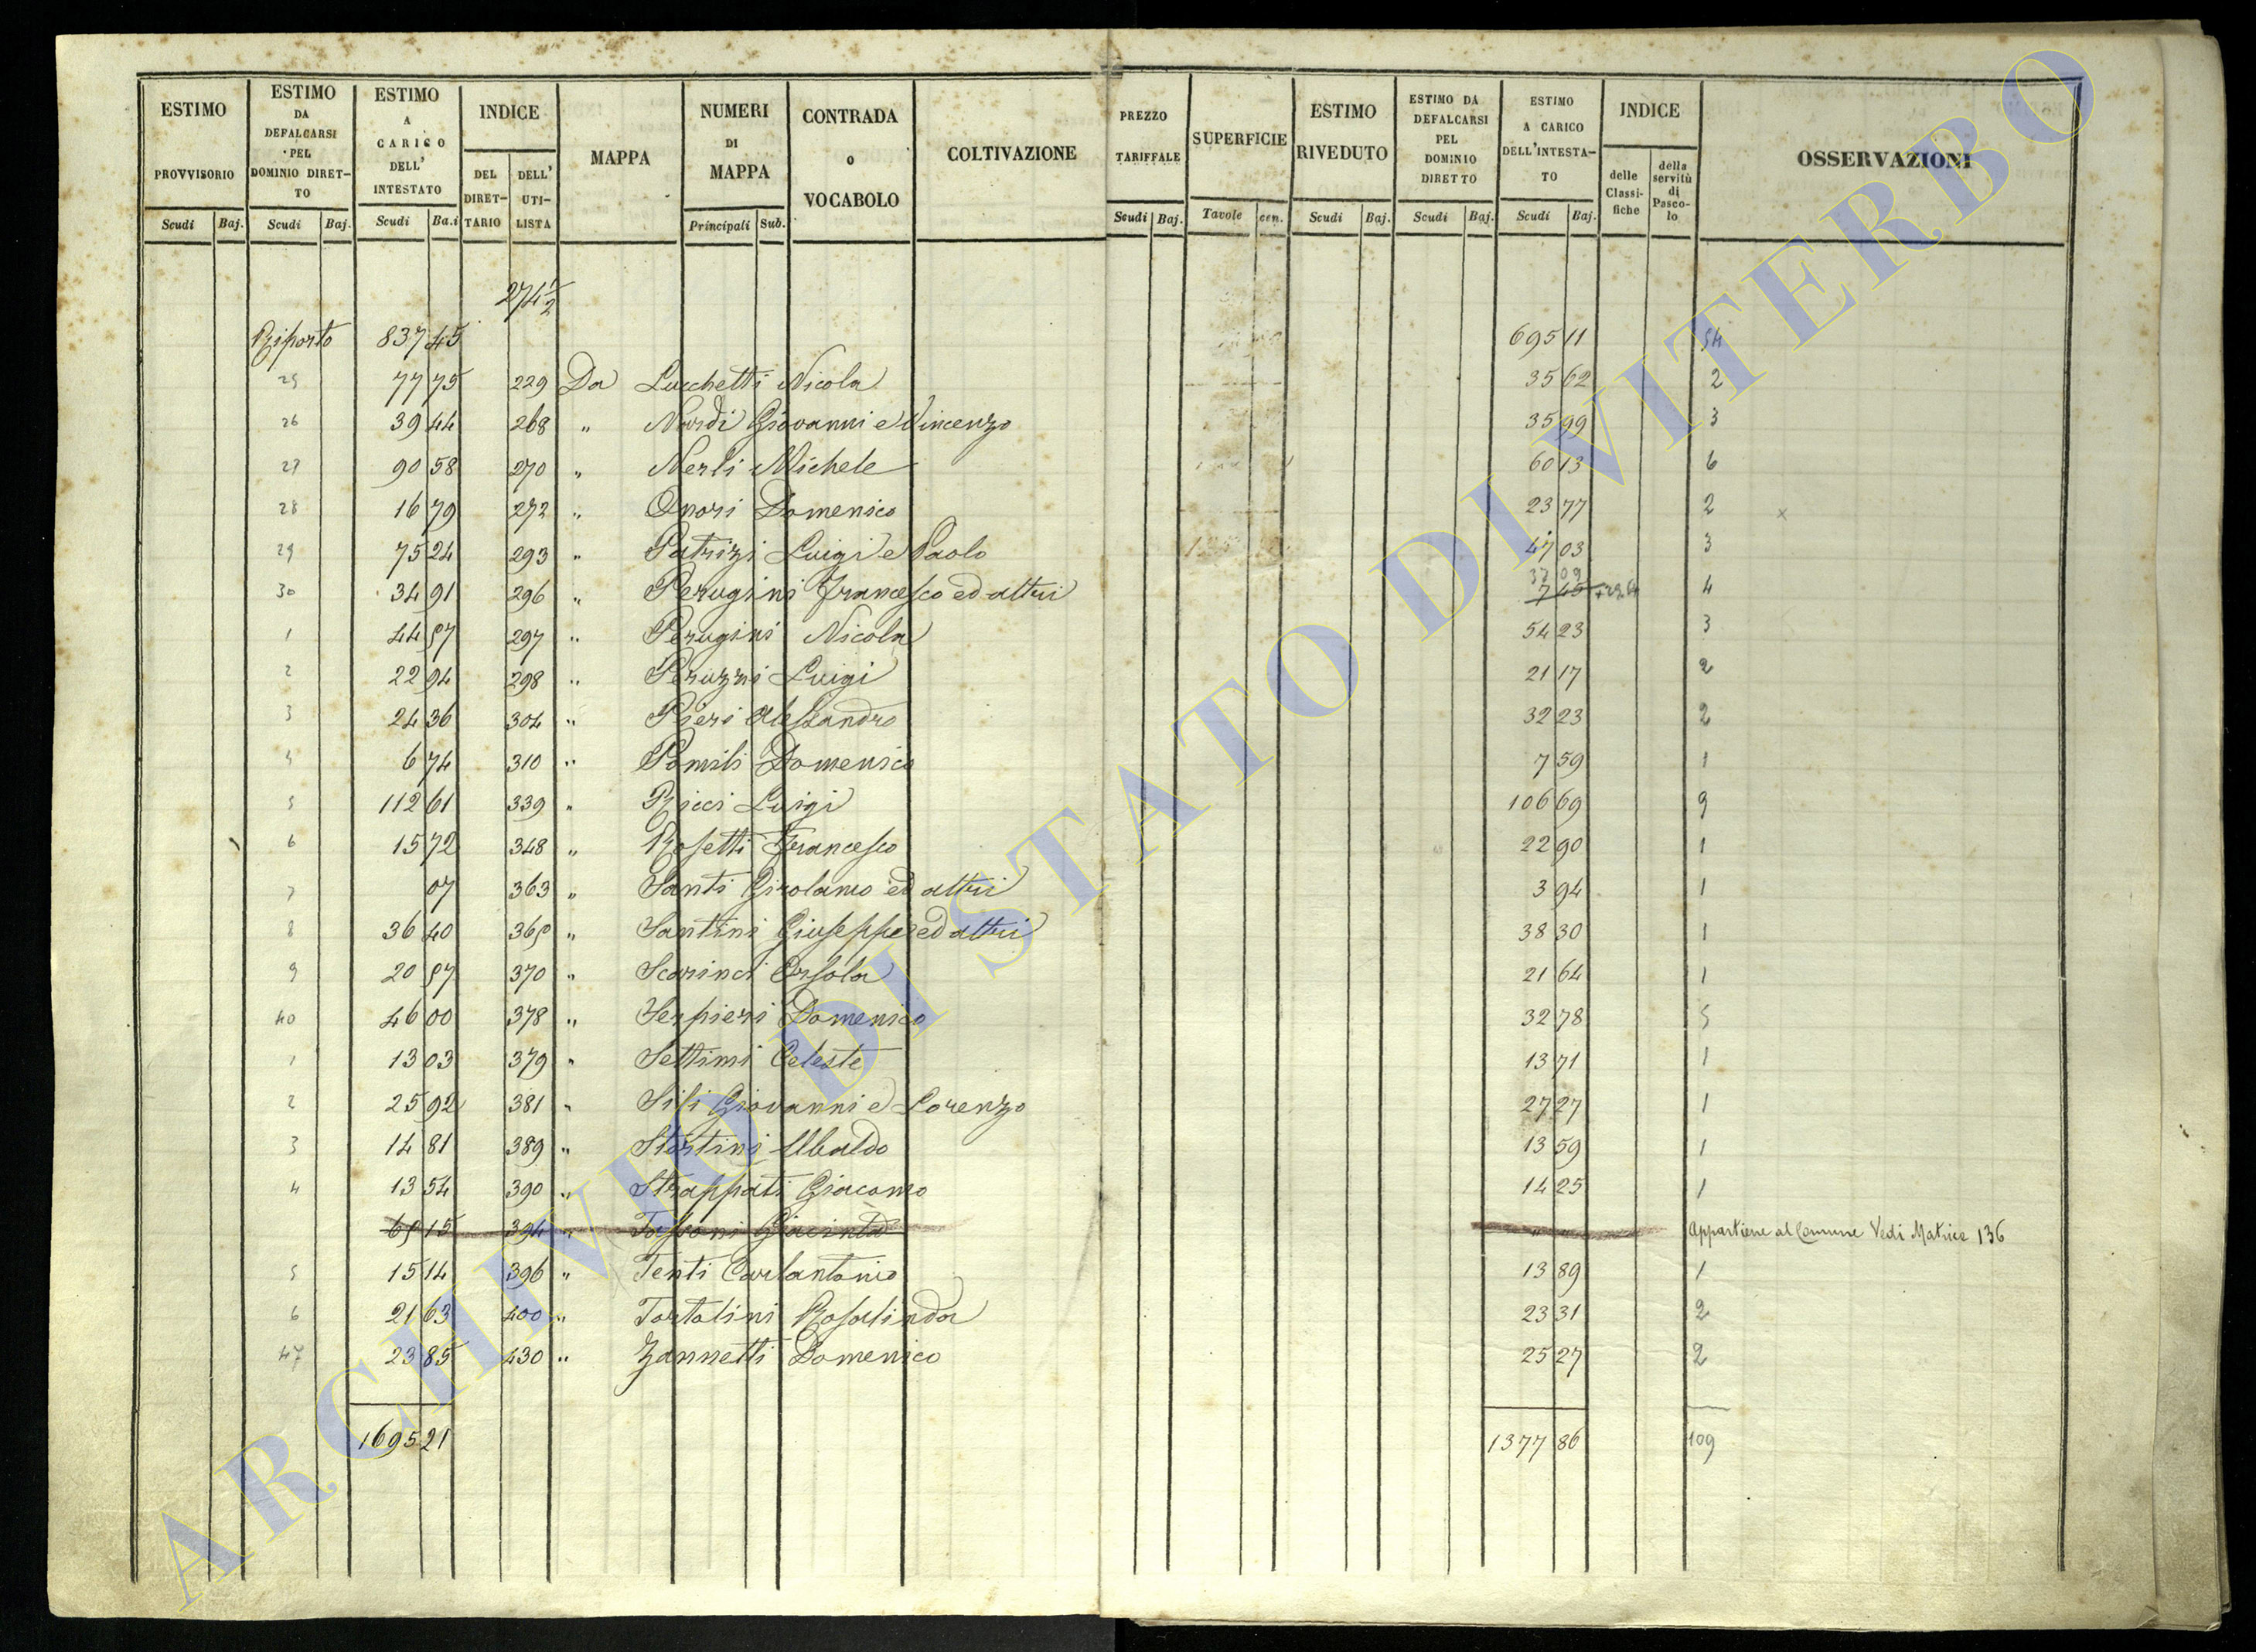 ESTIMO PROVVISORIO Scudi Baj.
ESTIMO DA DEFALCARSI PEL DOMINIO DIRET-TO Scudi Baj.
ESTIMO A CARICO DELL' INTESTATO Scudi Ba.i
INDICE DEL DIRET-TARIO DELL' UTI-LISTA
MAPPA
NUMERI DI MAPPA Principali Sub.
CONTRADA O VOCABOLO
COLTIVAZIONE
PREZZO TARIFFALE Scudi Baj.
SUPERFICIE Tavole cen.
ESTIMO RIVEDUTO Scudi Baj.
ESTIMO DA DEFALCARSI PEL DOMINIO DIRETTO Scudi Baj.
ESTIMO A CARICO DELL'INTESTA-TO Scudi Baj.
INDICE delle Classi-fiche della servitù di Pasco-lo
OSSERVAZIONI
274 1/2
Riporto 837 45 695 11 54
25 77 75 229 Da Lucchetti Nicola 35 62 2
26 39 44 268 " Nardi Giovanni e Vincenzo 35 99 3
27 90 58 270 " Nerli Michele 60 13 6
28 16 79 272 " Onori Domenico 23 77 2 x
29 75 24 293 " Patrizi Luigi e Paolo 47 03 3
30 34 91 296 " Perugini Francesco ed altri 37 09 7 45 4
1 44 57 297 " Perugini Nicola 54 23 3
2 22 94 298 " Peruzzi Luigi 21 17 2
3 24 36 304 " Pieri Alessandro 32 23 2
4 6 74 310 " Pomili Domenico 7 59 1
5 112 61 339 " Ricci Luigi 106 69 9
6 15 72 348 " Rosetti Francesco 22 90 1
7 07 363 " Santi Girolamo ed altri 3 94 1
8 36 40 365 " Santini Giuseppe ed altri 38 30 1
9 20 57 370 " Scarinci Orsola 21 64 1
40 46 00 378 " Serpieri Domenico 32 78 5
1 13 03 379 " Settimi Celeste 13 71 1
2 25 92 381 " Sisi Giovanni e Lorenzo 27 27 1
3 14 81 389 " Stortini Ubaldo 13 59 1
4 13 54 390 " Strappati Giacomo 14 25 1
65 15 394 " Tosoni Giacinta " " Appartiene al Comune Vedi Matrice 136
5 15 14 396 " Tenti Carlantonio 13 89 1
6 21 63 400 " Tortolini Rosalinda 23 31 2
47 23 85 430 " Zannetti Domenico 25 27 2
1695 21 1377 86 109
ARCHIVIO DI STATO DI VITERBO